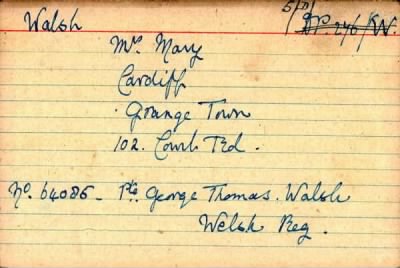 Walsh
Mrs Mary
Cardiff
Grange Town
102. Court Rd.
No. 64086- Pte. George Thomas. Walsh
Welsh Reg.